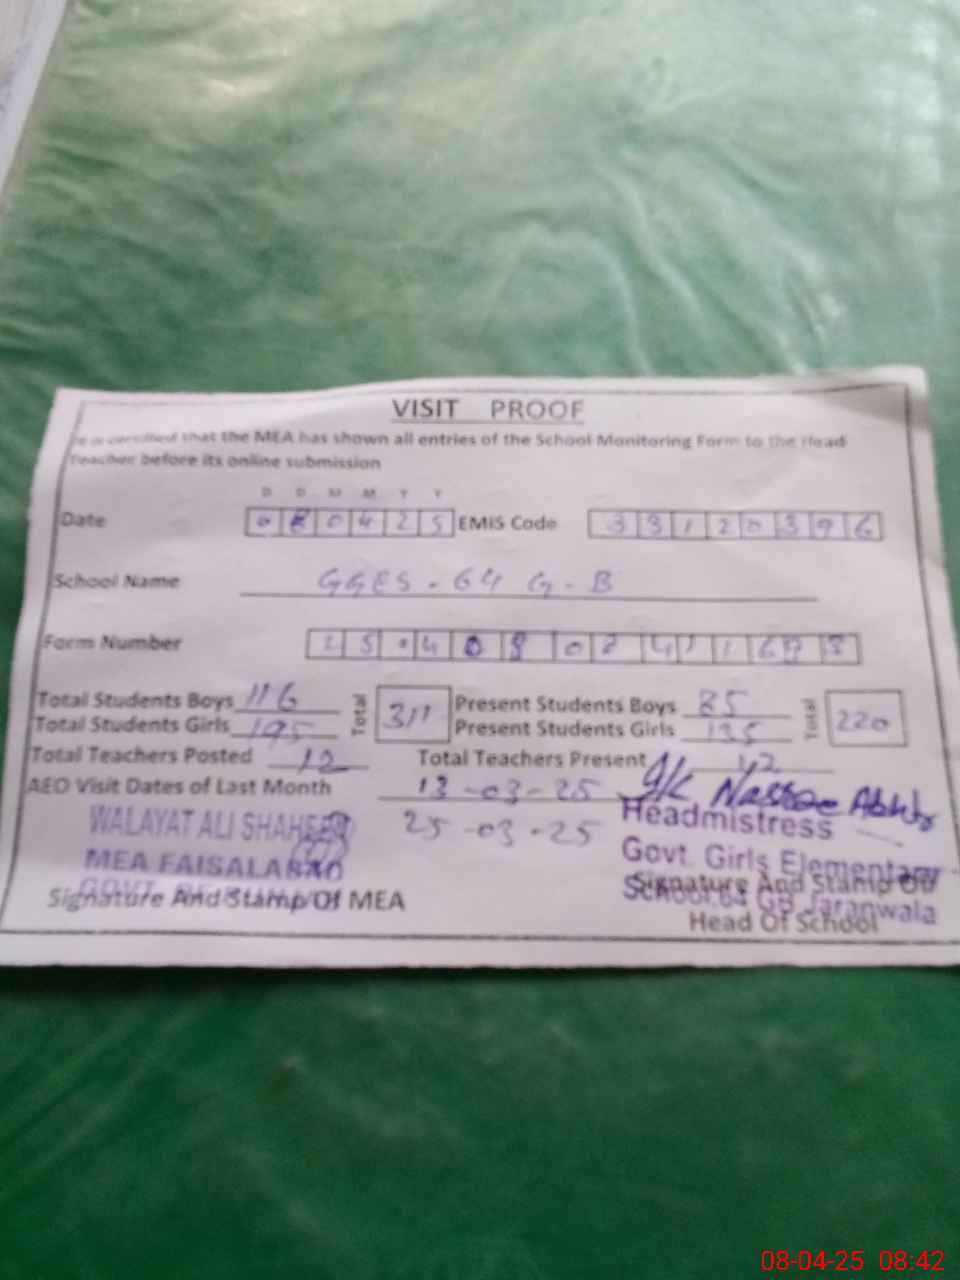 VISIT PROOF
It is certified that the MEA has shown all entries of the School Monitoring Form to the Head
Teacher before its online submission
D D M M Y Y
Date 0 8 0 4 2 5 EMIS Code 3 3 1 2 0 3 9 6
School Name GGES - 64 G - B
Form Number
Total Students Boys 116 Total 311 Present Students Boys 85 Total 220
Total Students Girls 195 Present Students Girls 135
Total Teachers Posted 12 Total Teachers Present 12
AEO Visit Dates of Last Month 13-03-25
25-03-25
WALAYAT ALI SHAHEEN
MEA FAISALABAD
Signature And Stamp Of MEA
Headmistress
Govt. Girls Elementary
School 64 GB Jaranwala
Signature And Stamp Of
Head Of School
08-04-25 08:42